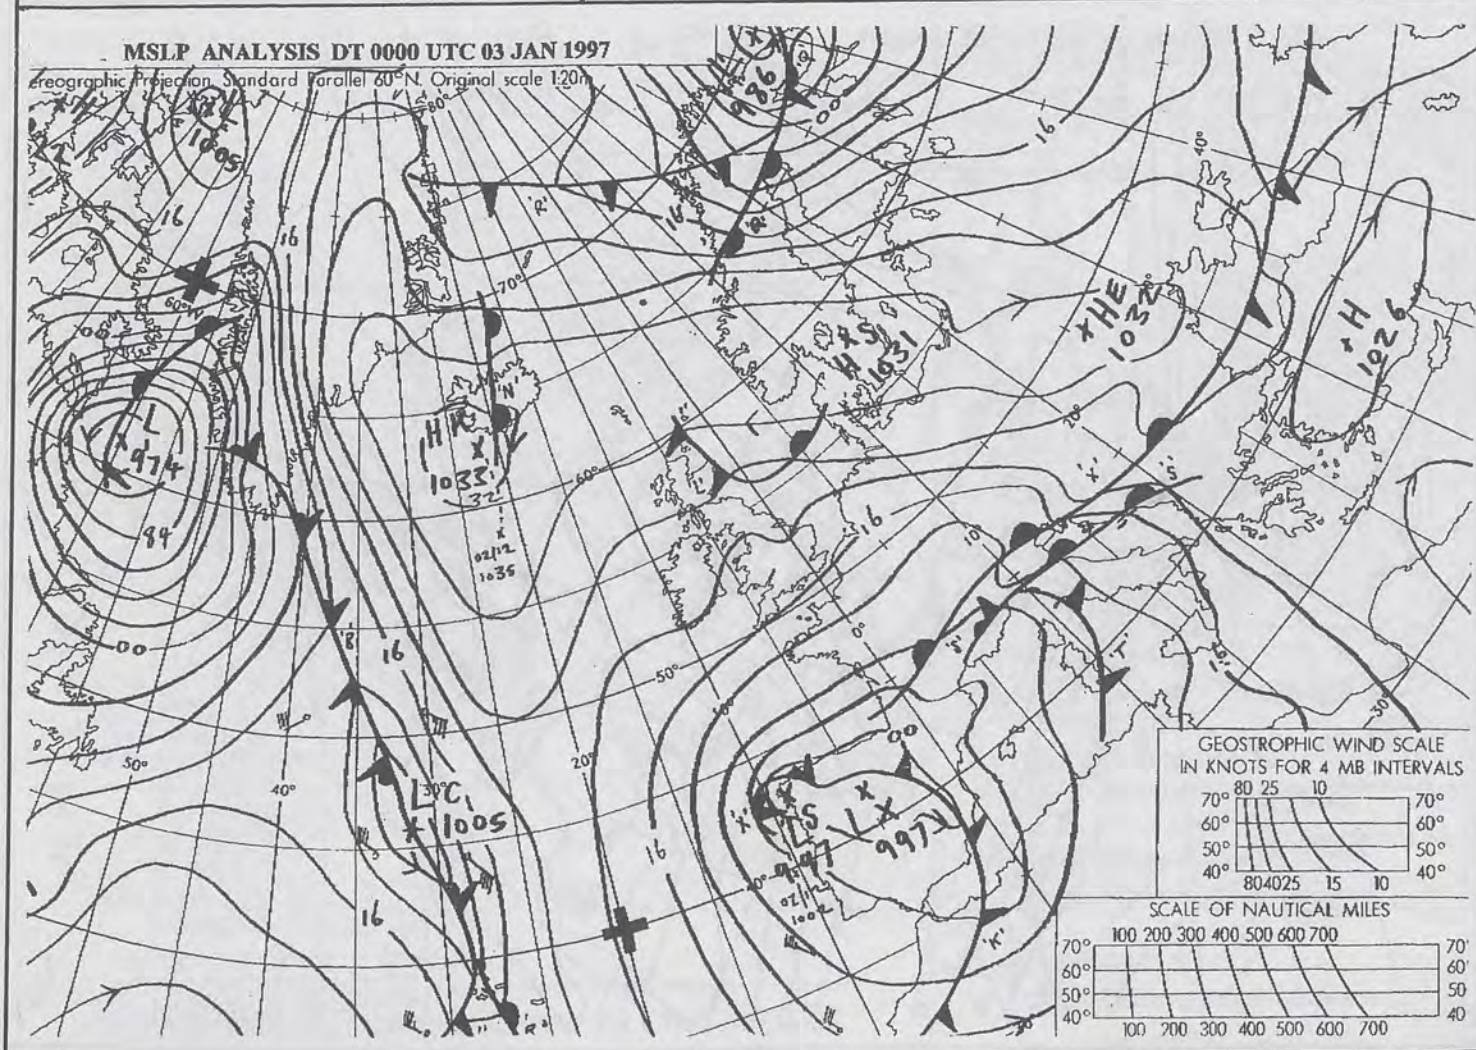 MSLP ANALYSIS DT 0000 UTC 03 JAN 1997
ereographic Projection, Standard Parallel 60°N. Original scale 1:20m
80°
986
00
1005
16
16
'R'
16
'R'
16
40°
60°
70°
00
HE
1032
H
1026
H
1031
L
974
84
H
1033
32
'N'
02/12
1035
60°
'L'
16
10°
20°
'X'
'S'
00
'B'
16
0°
50°
10°
'S'
'T'
30°
50°
40°
20°
L C
30°
1005
16
16
00
'X'
L S
997
L X
997
40°
1002
'K'
'R'
GEOSTROPHIC WIND SCALE
IN KNOTS FOR 4 MB INTERVALS
80 25 10
70° 70°
60° 60°
50° 50°
40° 40°
80 40 25 15 10
SCALE OF NAUTICAL MILES
100 200 300 400 500 600 700
70° 70°
60° 60°
50° 50
40° 40
100 200 300 400 500 600 700